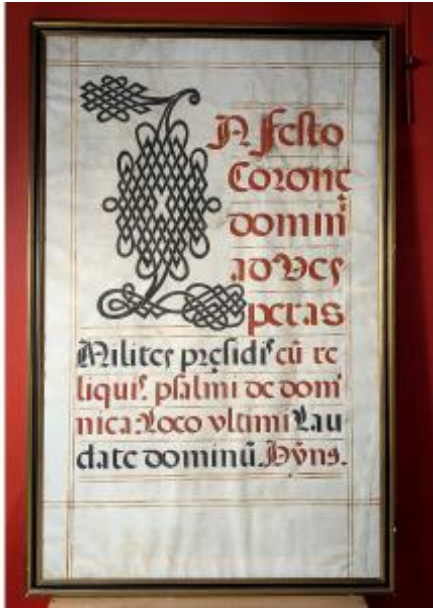 In festo
Corone
domini
ad Ves
peras
Milites presidis cū re
liquis psalmi de dom
nica: Loco vltimi Lau
date dominū. Hyms.